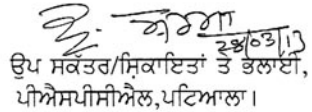 ਸ਼ਰਮਾ
28/03/13
ਉਪ ਸਕੱਤਰ/ਸ਼ਿਕਾਇਤਾਂ ਤੇ ਭਲਾਈ,
ਪੀਐਸਪੀਸੀਐਲ,ਪਟਿਆਲਾ।